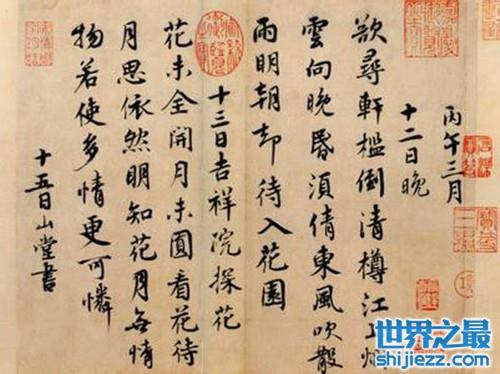 丙午三月
十二日晚
欲尋軒檻倒清樽江上烟
雲向晚昏須倩東風吹散
雨明朝却待入花園
十三日吉祥院探花
花未全開月未圓看花待
月思依然明知花月無情
物若使多情更可憐
十五日山堂書
世界之最
shijiezz.com